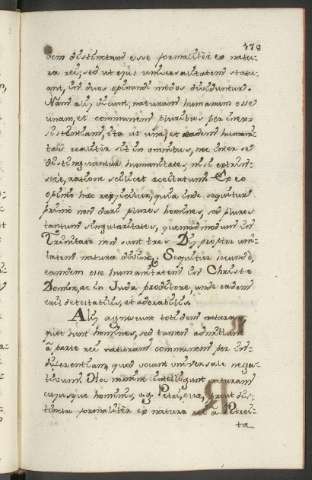 179
dem distinctam esse formaliter ex natu-
ra rei, sed ut ejus universalitatem statu-
ant, in duos opinandi modos dividuntur.
Nam alij dicunt, naturam humanam esse
unam, et communem pluribus per inexis-
tentiam, ita ut una, et eadem humani-
tas realiter sit in omnibus, nec inter se
distinguantur humanitates, nisi extrin-
sice, ratione scilicet Ex eo
opinio haec rejicitur, quia inde sequitur
primo non dari plures homines, sed plures
tantum singularitates, quemadmodum in
Trinitate non sunt tres Dij propter uni-
tatem naturae divinae. Sequitur secundo,
eamdem esse humanitatem in Christo
Domino, ac in Juda proditore, unde eadem
erit detestabilis, et adorabilis.
Alij agnoscunt tot idem naturas,
quot sunt homines, sed tamen admittunt
a parte rei naturam communem per in-
differentiam, quam vocant universale nega-
tivum. Hoc intelligunt naturam
cujusque hominis, v.g. Petri, eva, prout dis-
tincta formaliter ex natura rei a Petrei-
ta